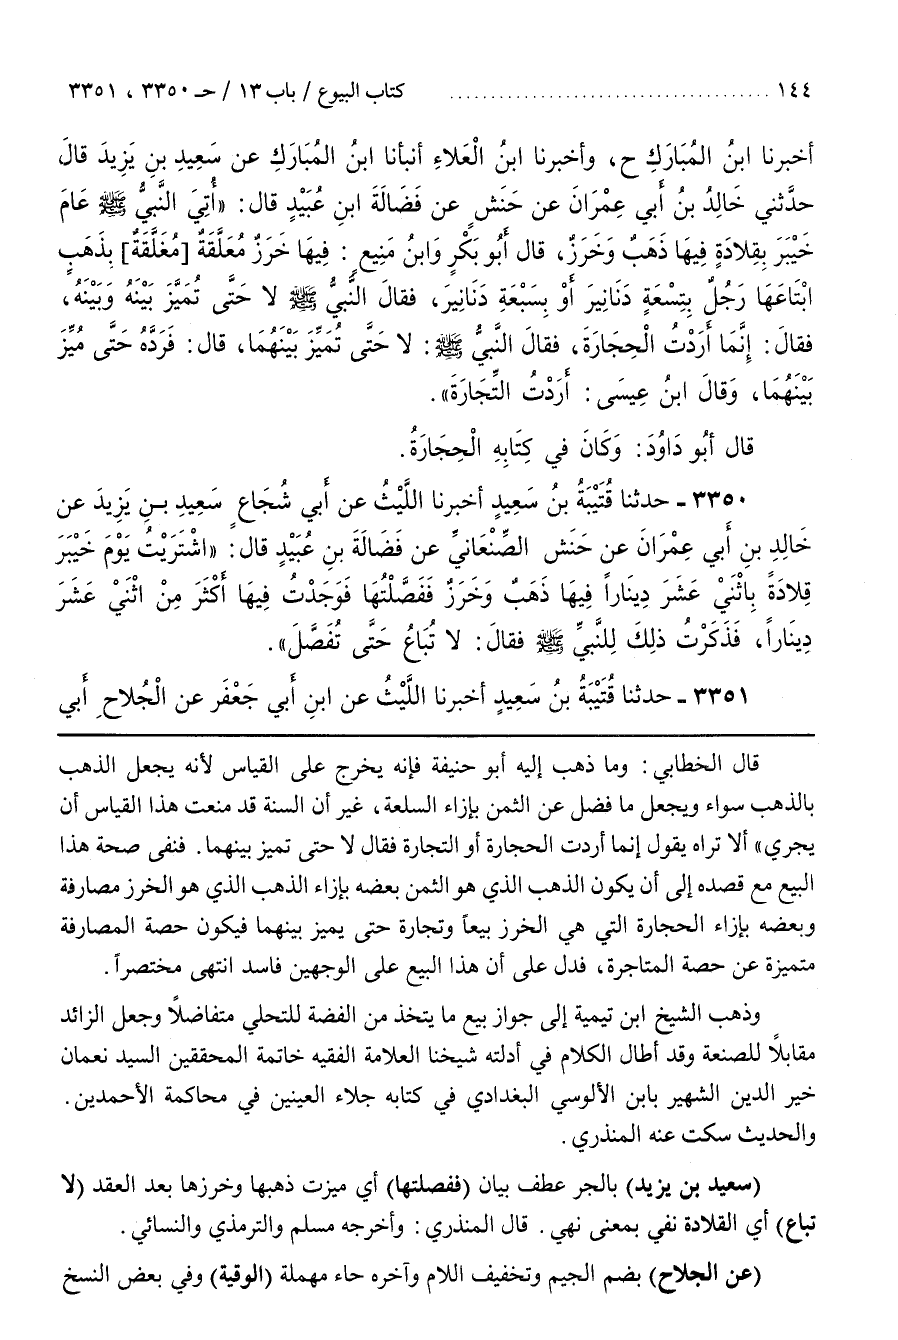 ١٤٤ ..................................... كتاب البيوع / باب ١٣ / حـ ٣٣٥٠ ، ٣٣٥١
أخبرنا ابنُ المُبَارَكِ ح، وأخبرنا ابنُ الْعَلاءِ أنبأنا ابنُ المُبَارَكِ عن سَعِيدِ بنِ يَزِيدَ قالَ
حدَّثني خَالِدُ بنُ أَبي عِمْرَانَ عن حَنَشٍ عن فَضَالَةَ ابنِ عُبَيْدٍ قال: «أُتِيَ النَّبيُّ ﷺ عَامَ
خَيْبَرَ بِقِلادَةٍ فِيهَا ذَهَبٌ وَخَرَزٌ، قال أَبُو بَكْرٍ وَابنُ مَنِيعٍ: فِيهَا خَرَزٌ مُعَلَّقَةٌ [مُغَلَّقَةٌ] بِذَهَبٍ
ابْتَاعَهَا رَجُلٌ بِتِسْعَةٍ دَنَانِيرَ أَوْ بِسَبْعَةِ دَنَانِيرَ، فَقالَ النَّبيُّ ﷺ لا حَتَّى تُمَيِّزَ بَيْنَهُ وَبَيْنَهُ،
فقالَ: إِنَّمَا أَرَدْتُ الْحِجَارَةَ، فَقالَ النَّبيُّ ﷺ: لا حَتَّى تُمَيِّزَ بَيْنَهُمَا، قال: فَرَدَّهُ حَتَّى مُيِّزَ
بَيْنَهُمَا، وَقالَ ابنُ عِيسَى: أَرَدْتُ التِّجَارَةَ».
قال أبُو دَاوُدَ: وَكَانَ في كِتَابِهِ الْحِجَارَةُ.
٣٣٥٠ ـ حدثنا قُتَيْبَةُ بنُ سَعِيدٍ أخبرنا اللَّيْثُ عن أَبي شُجَاعٍ سَعِيدِ بـنِ يَزِيدَ عن
خَالِدِ بنِ أَبي عِمْرَانَ عن حَنَشِ الصِّنْعَانيِّ عن فَضَالَةَ بنِ عُبَيْدٍ قال: «اشْتَرَيْتُ يَوْمَ خَيْبَرَ
قِلادَةً بِاثْنَيْ عَشَرَ دِينَاراً فِيهَا ذَهَبٌ وَخَرَزٌ فَفَصَّلْتُهَا فَوَجَدْتُ فِيهَا أَكْثَرَ مِنْ اثْنَيْ عَشَرَ
دِينَاراً، فَذَكَرْتُ ذلِكَ لِلنَّبيِّ ﷺ فقالَ: لا تُبَاعُ حَتَّى تُفَصَّلَ».
٣٣٥١ ـ حدثنا قُتَيْبَةُ بنُ سَعِيدٍ أخبرنا اللَّيْثُ عن ابنِ أَبي جَعْفَرٍ عن الْجُلاحِ أَبي
قال الخطابي: وما ذهب إليه أبو حنيفة فإنه يخرج على القياس لأنه يجعل الذهب
بالذهب سواء ويجعل ما فضل عن الثمن بإزاء السلعة، غير أن السنة قد منعت هذا القياس أن
يجري» ألا تراه يقول إنما أردت الحجارة أو التجارة فقال لا حتى تميز بينهما. فنفى صحة هذا
البيع مع قصده إلى أن يكون الذهب الذي هو الثمن بعضه بإزاء الذهب الذي هو الخرز مصارفة
وبعضه بإزاء الحجارة التي هي الخرز بيعاً وتجارة حتى يميز بينهما فيكون حصة المصارفة
متميزة عن حصة المتاجرة، فدل على أن هذا البيع على الوجهين فاسد انتهى مختصراً.
وذهب الشيخ ابن تيمية إلى جواز بيع ما يتخذ من الفضة للتحلي متفاضلاً وجعل الزائد
مقابلاً للصنعة وقد أطال الكلام في أدلته شيخنا العلامة الفقيه خاتمة المحققين السيد نعمان
خير الدين الشهير بابن الألوسي البغدادي في كتابه جلاء العينين في محاكمة الأحمدين.
والحديث سكت عنه المنذري.
(سعيد بن يزيد) بالجر عطف بيان (ففصلتها) أي ميزت ذهبها وخرزها بعد العقد (لا
تباع) أي القلادة نفي بمعنى نهي. قال المنذري: وأخرجه مسلم والترمذي والنسائي.
(عن الجلاح) بضم الجيم وتخفيف اللام وآخره حاء مهملة (الوقية) وفي بعض النسخ